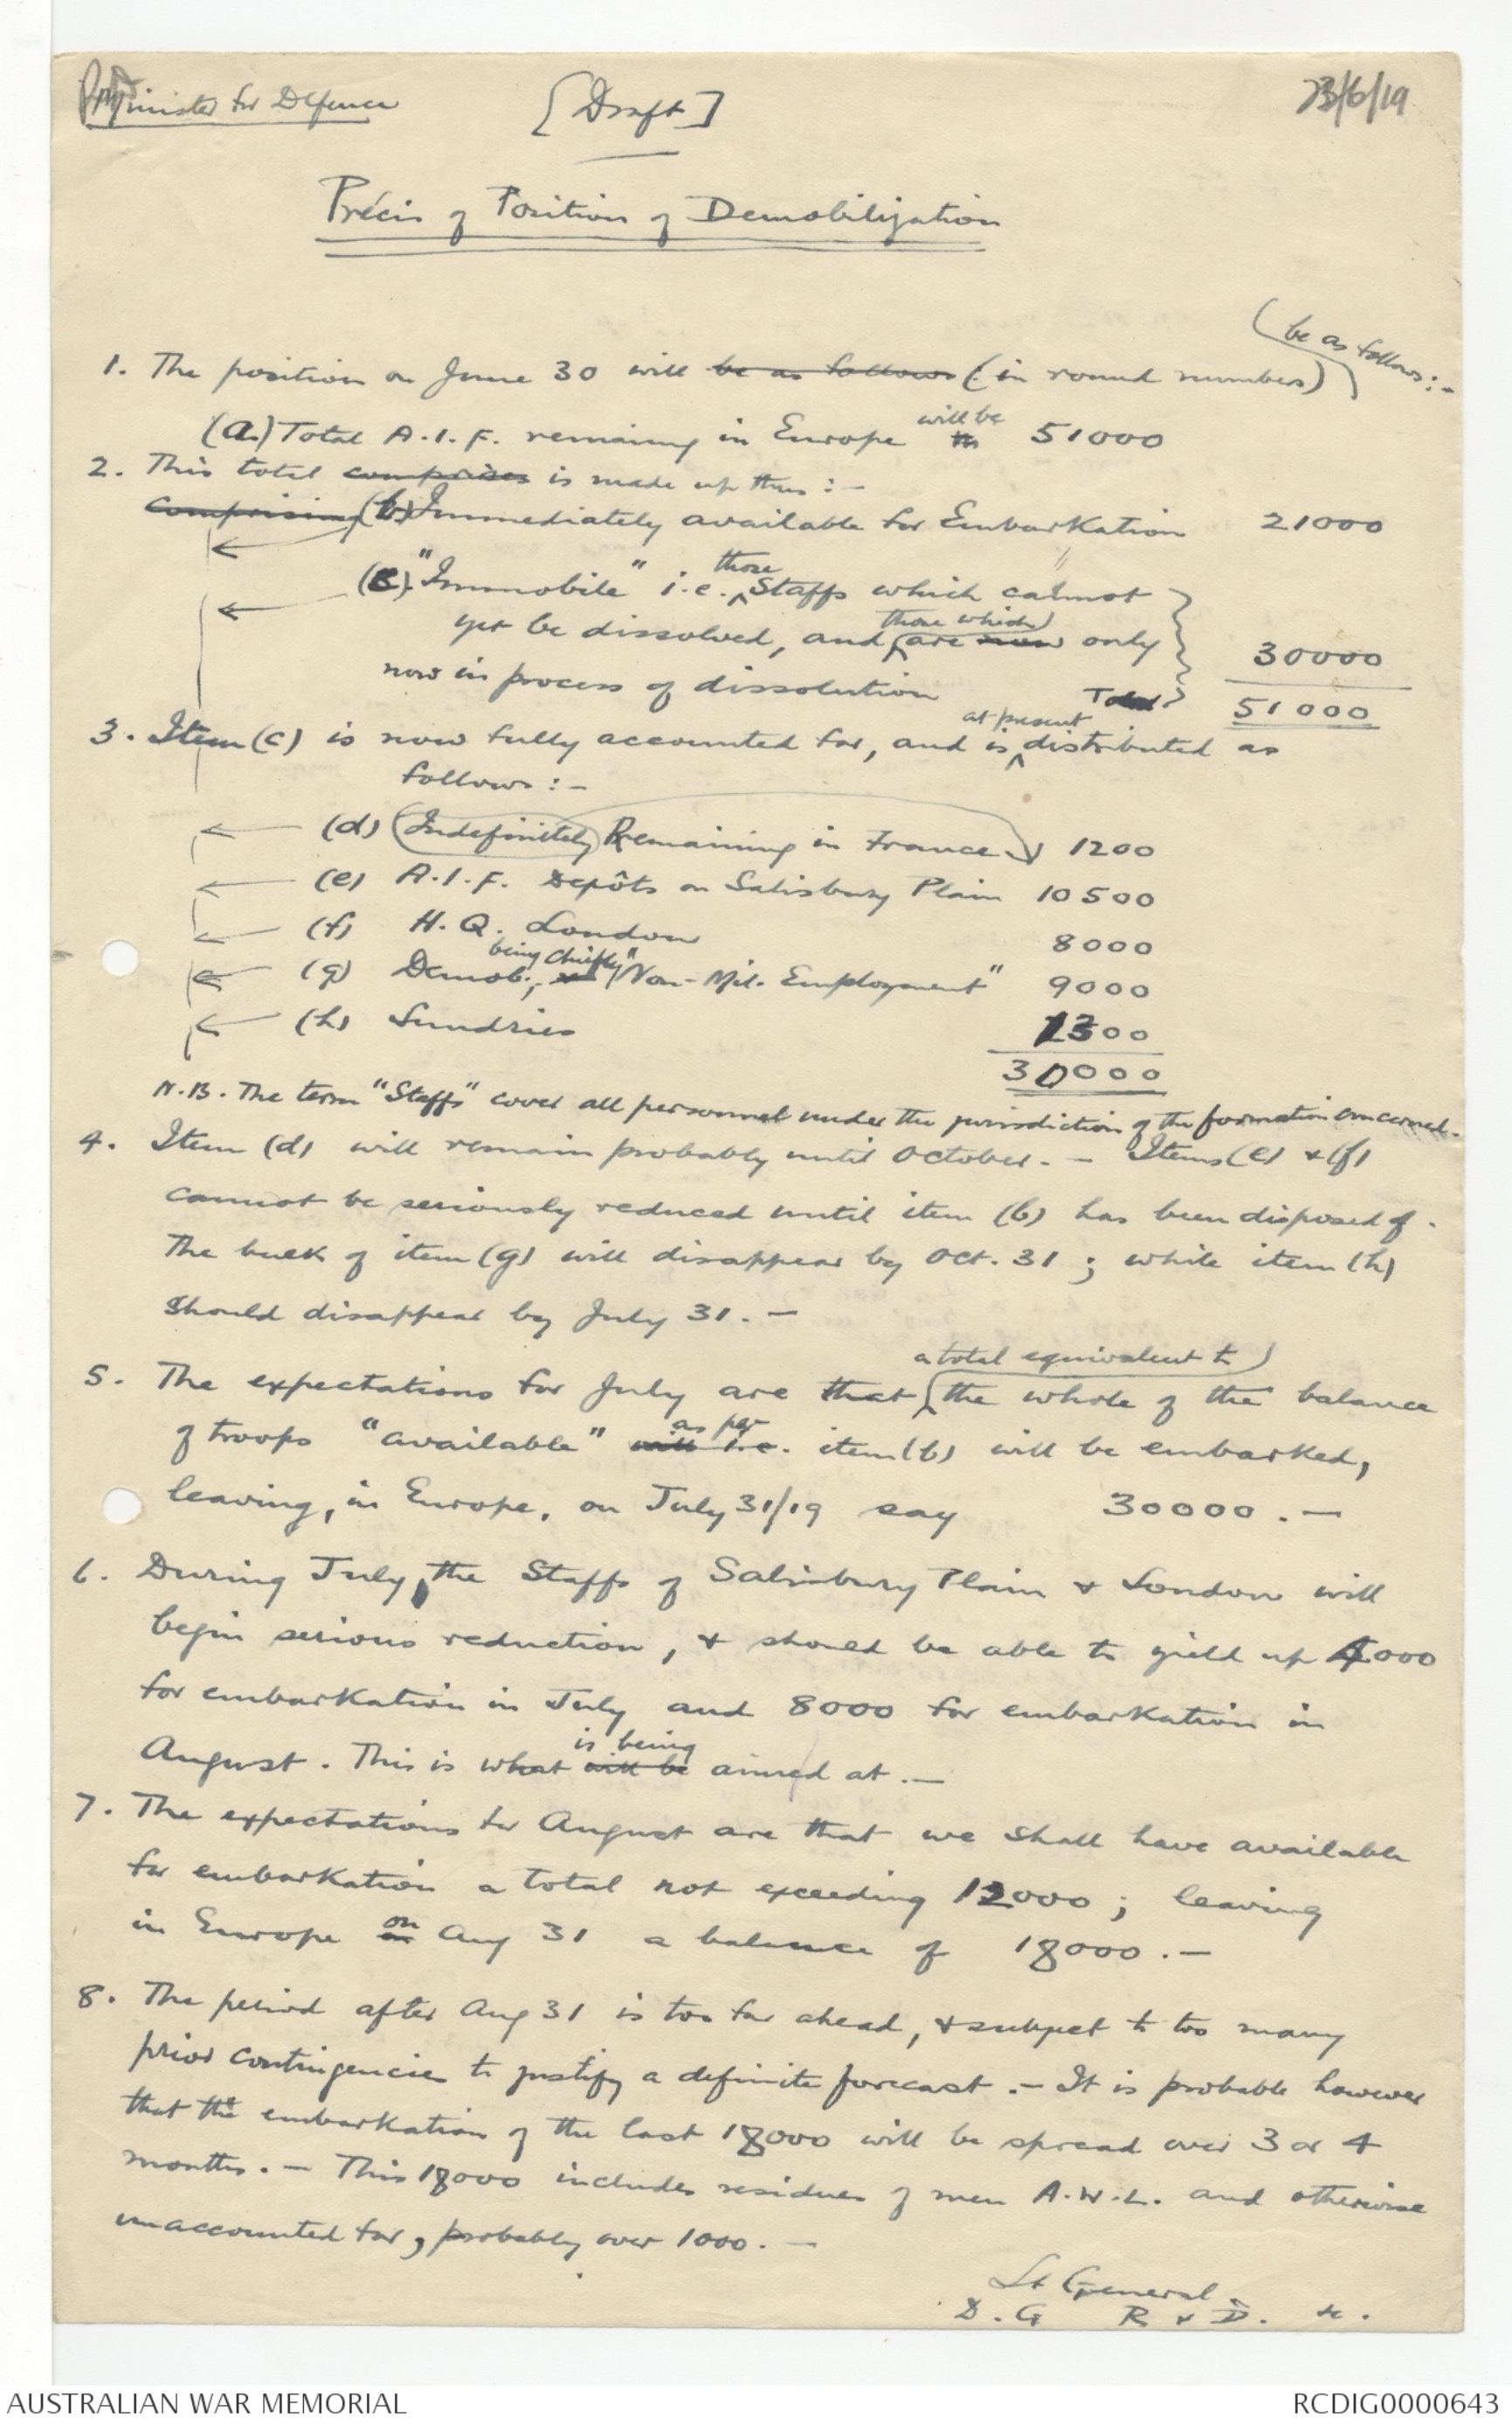 Minister for Defence
[Draft]
23/6/19
Précis of Position of Demobilization
be as follows:-
1. The position on June 30 will be as follows (in round numbers)
will be
(a) Total A.I.F. remaining in Europe 51000
2. This total comprises is made up thus:-
comprising (b) Immediately available for Embarkation 21000
those
(c) "Immobile" i.e. Staffs which cannot
those which
yet be dissolved, and are now only 30000
now in process of dissolution Total 51000
at present
3. Item (c) is now fully accounted for, and is distributed as
follows:-
(d) Indefinitely Remaining in France 1200
(e) A.I.F. Depôts on Salisbury Plain 10500
(f) H.Q. London 8000
being chiefly
(g) Demob., "Non-Mil. Employment" 9000
(h) Sundries 1300
30000
N.B. The term "Staffs" cover all personnel under the jurisdiction of the formation concerned.
4. Item (d) will remain probably until October. - Items (e) & (f)
cannot be seriously reduced until item (b) has been disposed of.
The bulk of item (g) will disappear by Oct. 31; while item (h)
should disappear by July 31. -
a total equivalent to
5. The expectations for July are that the whole of the balance
as per
of troops "available" will i.e. item (b) will be embarked,
leaving, in Europe, on July 31/19 say 30000. -
6. During July, the Staffs of Salisbury Plain & London will
begin serious reduction, & should be able to yield up 4000
for embarkation in July and 8000 for embarkation in
is being
August. This is what will be aimed at. -
7. The expectations for August are that we shall have available
for embarkation a total not exceeding 12000; leaving
on
in Europe Aug 31 a balance of 18000. -
8. The period after Aug 31 is too far ahead, & subject to too many
prior contingencies to justify a definite forecast. - It is probable however
that the embarkation of the last 18000 will be spread over 3 or 4
months. - This 18000 includes residues of men A.W.L. and otherwise
unaccounted for, probably over 1000. -
Lt General.
D. G R & D.
AUSTRALIAN WAR MEMORIAL
RCDIG0000643